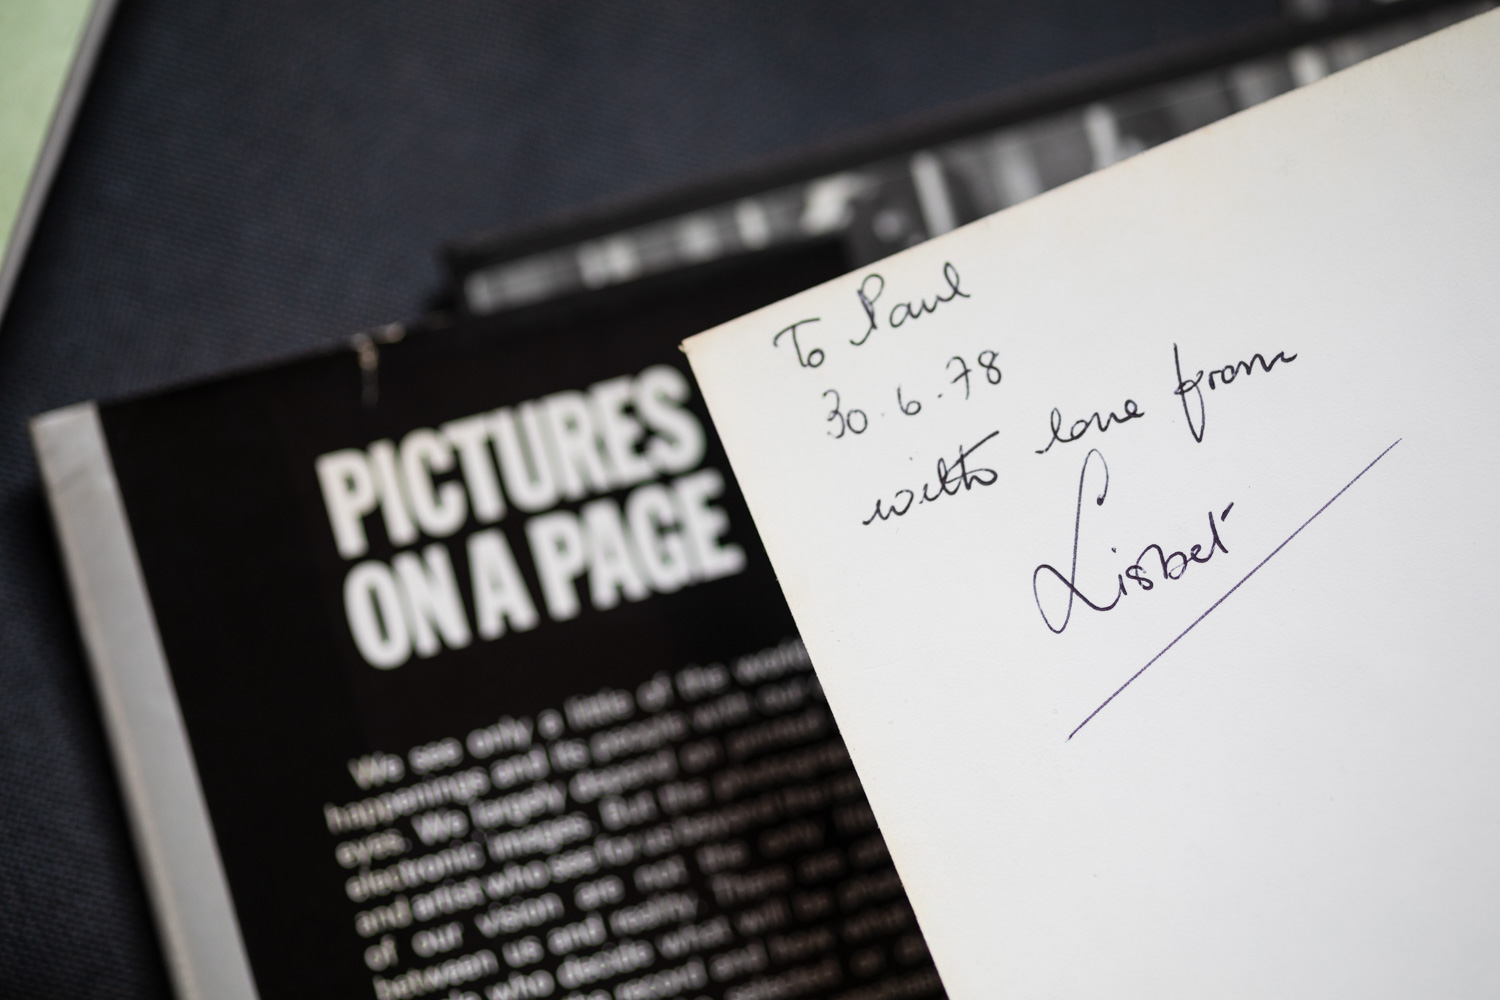 PICTURES
ON A PAGE
We see only a little of the world
happenings and its people with our
eyes. We largely depend on
electronic images. But the
and artist who see for us beyond the
of our vision are not the only
between us and reality. There are
who decide what will be
record and
selected
To Paul
30.6.78
with love from
Lisbet